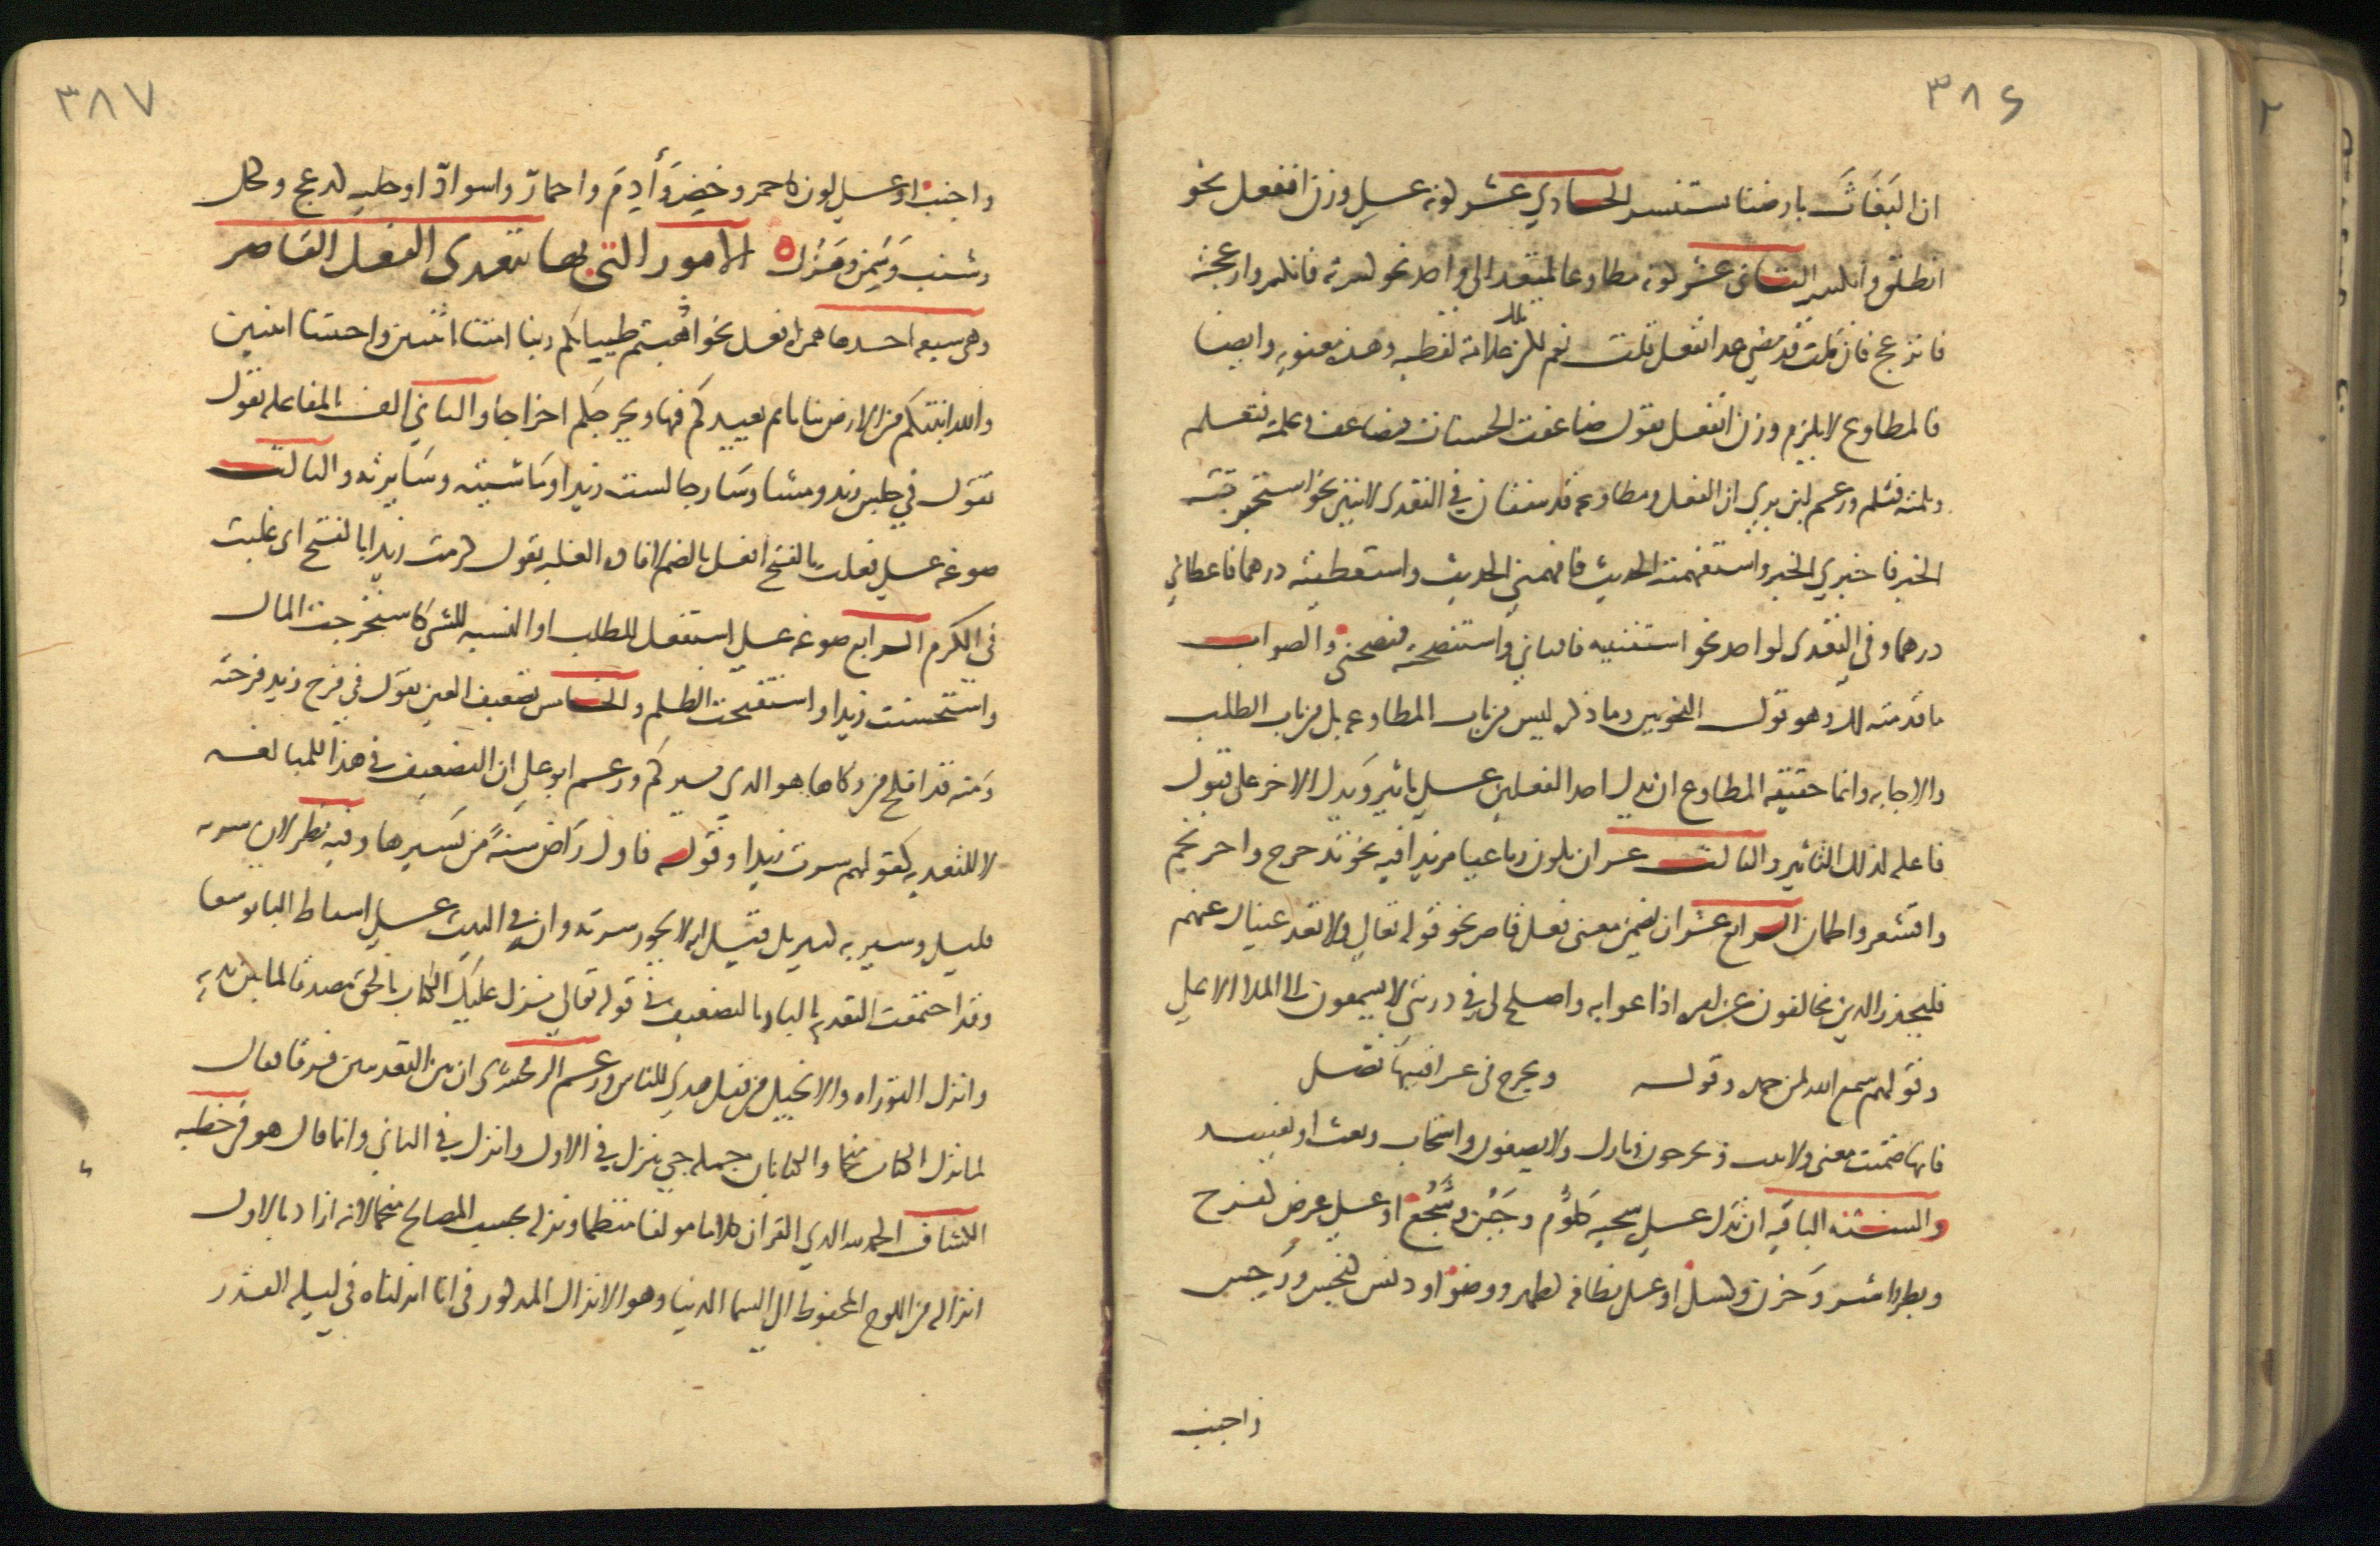 ٣٨٦
ان البَغَاثَ بارضنا يستنسر الحادي عشر كونه على وزن انفعل نحو
انطلق وانكسر الثاني عشر كونه مطاوعا لمتعد الى واحد نحو كسرته فانكسر وازعجته
فانزعج فان قلت قد مضى عد انفعل قلت نعم لكن تلك علامة لفظيه وهذه معنويه وايضا
فالمطاوع لا يلزم وزن انفعل تقول ضاعفت الحسنات فتضاعفت وعلمته فتعلم
وثلمته فتثلم وزعم ابن بري ان الفعل ومطاوعه قد يتفقان في التعدي لاثنين نحو استخبرته
الخبر فاخبرني الخبر واستفهمته الحديث فافهمني الحديث واستعطيته درهما فاعطاني
درهما وفي التعدي لواحد نحو استفتيه فافتاني واستنصحته فنصحني والصواب
ما قدمته لك وهو قول النحويين وما ذكره ليس من باب المطاوعه بل من باب الطلب
والاجابه وانما حقيقه المطاوع ان يدل احد الفعلين على تاثير ويدل الاخر على قبول
فاعله لذلك التاثير والثالث عشر ان يكون رباعيا مزيدا فيه نحو تدحرج واحرنجم
واقشعر واطمان الرابع عشر ان يضمن معنى فعل قاصر نحو قوله تعالى ولا تعد عيناك عنهم
فليحذر الذين يخالفون عن امره اذاعوا به واصلح لي في ذريتي لا يسمعون الى الملا الاعلى
وقولهم سمع الله لمن حمده وقوله يجرح في عراقيبها نصلي
فانها ضمنت معنى ولا تنب ويخرجون وبارك ولا يصغون واستجاب ويعث او يفسد
والسته الباقيه ان يدل على سجيه كلؤم وجَبُن وشَجُع او على عرض كفرح
وبطر واشر وحزن وكسل او على نظافه كطهر ووضؤ او دنس كنجس ورجس
واجنب
٣٨٧
واجنب او على لون كاحمر وخضِر وأَدِم واحمارّ واسوادّ او حليه كدعج وكحل
وشنب وسَمِن وهَزُل ٥ الامور التي بها يتعدى الفعل القاصر
وهي سبعه احدها همزه افعل نحو اذهبتم طيباتكم ربنا امتنا اثنتين واحييتنا اثنتين
والله انبتكم من الارض نباتا ثم يعيدكم فيها ويخرجكم اخراجا والثاني الف المفاعله تقول
تقول في جلس زيد ومشا وسَار جالست زيدا وماشيته وسَايرته والثالث
صوغه على فعلت بالفتح افعل بالضم لافاده الغلبه تقول كرمت زيدا بالفتح اي غلبته
في الكرم الرابع صوغه على استفعل للطلب او النسبه للشئ كاستخرجت المال
واستحسنت زيدا واستقبحت الظلم والخامس تضعيف العين تقول في فرح زيد فرحته
ومنه قد افلح من زكاها هو الذي يسيركم وزعم ابو علي ان التضعيف في هذا للمبالغه
لا للتعديه كقولهم سرت زيدا وقوله فاول راض سنةً من يسيرها وفيه نظر لان سرته
قليل وسيرته كثير بل قيل انه لا يجوز سرته وانه في البيت على اسقاط البا توسعا
وقد اجتمعت التعديه بالباء وبالتضعيف في قوله تعالى نزل عليك الكتاب بالحق مصدقا لما بين يديه
وانزل التوراه والانجيل من قبل هدى للناس وزعم الزمخشري ان بين التعديتين فرقا فقال
لما نزل الكتاب منجما والكتابان جمله جي بنزل في الاول وانزل في الثاني وانما قال هو في خطبه
الكشاف الحمد لله الذي القران كلاما مولفا منتظما ونزله بحسب المصالح منجما لانه اراد بالاول
انزاله من اللوح المحفوظ الى السما الدنيا وهو الانزال المذكور في انا انزلناه في ليله القدر